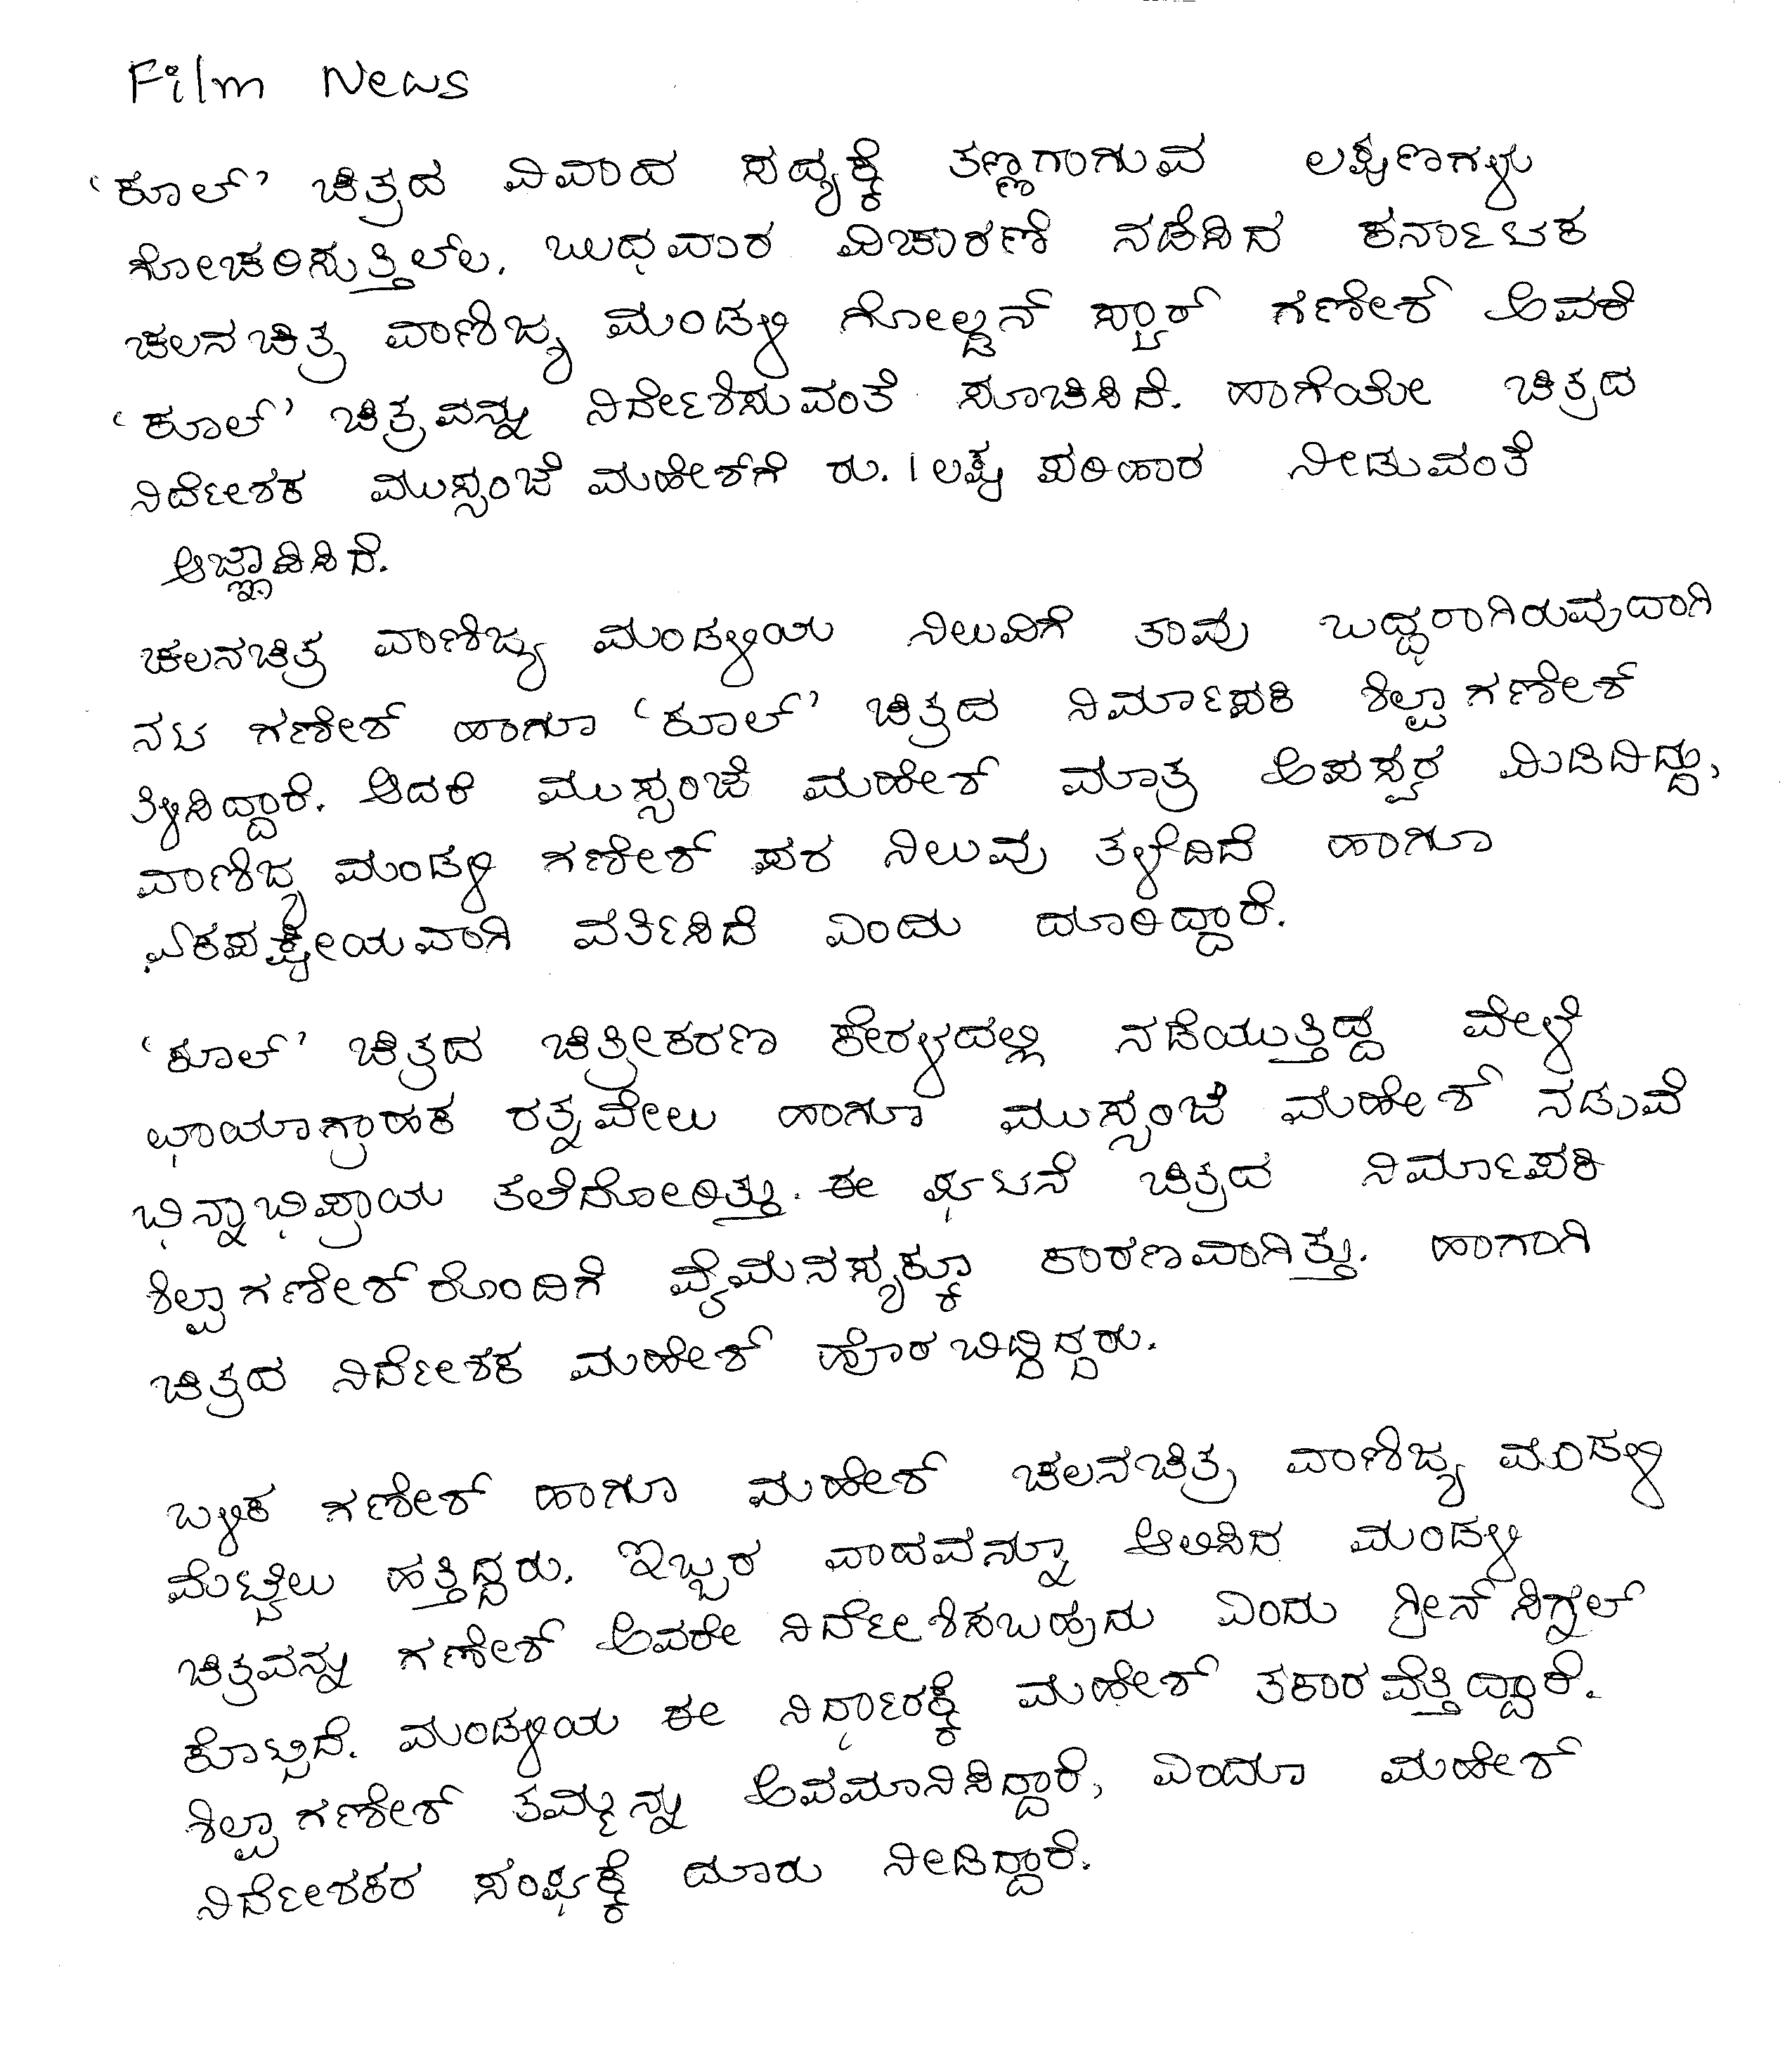 Film News
‘ಕೂಲ್’ ಚಿತ್ರದ ವಿವಾದ ಸದ್ಯಕ್ಕೆ ತಣ್ಣಗಾಗುವ ಲಕ್ಷಣಗಳು
ಗೋಚರಿಸುತ್ತಿಲ್ಲ. ಬುಧವಾರ ವಿಚಾರಣೆ ನಡೆಸಿದ ಕರ್ನಾಟಕ
ಚಲನಚಿತ್ರ ವಾಣಿಜ್ಯ ಮಂಡಳಿ ಗೋಲ್ಡನ್ ಸ್ಟಾರ್ ಗಣೇಶ್ ಅವರೆ
‘ಕೂಲ್’ ಚಿತ್ರವನ್ನು ನಿರ್ದೇಶಿಸುವಂತೆ ಸೂಚಿಸಿದೆ. ಹಾಗೆಯೇ ಚಿತ್ರದ
ನಿರ್ದೇಶಕ ಮುಸ್ಸಂಜೆ ಮಹೇಶ್‌ಗೆ ರು. 1 ಲಕ್ಷ ಪರಿಹಾರ ನೀಡುವಂತೆ
ಆಜ್ಞಾಪಿಸಿದೆ.
ಚಲನಚಿತ್ರ ವಾಣಿಜ್ಯ ಮಂಡಳಿಯ ನಿಲುವಿಗೆ ತಾವು ಬದ್ಧರಾಗಿರುವುದಾಗಿ
ನಟ ಗಣೇಶ್ ಹಾಗೂ ‘ಕೂಲ್’ ಚಿತ್ರದ ನಿರ್ಮಾಪಕಿ ಶಿಲ್ಪಾ ಗಣೇಶ್
ತಿಳಿಸಿದ್ದಾರೆ. ಆದರೆ ಮುಸ್ಸಂಜೆ ಮಹೇಶ್ ಮಾತ್ರ ಅಪಸ್ವರ ಮಿಡಿದಿದ್ದು,
ವಾಣಿಜ್ಯ ಮಂಡಳಿ ಗಣೇಶ್ ಪರ ನಿಲುವು ತಳೆದಿದೆ ಹಾಗೂ
ಏಕಪಕ್ಷೀಯವಾಗಿ ವರ್ತಿಸಿದೆ ಎಂದು ದೂರಿದ್ದಾರೆ.
‘ಕೂಲ್’ ಚಿತ್ರದ ಚಿತ್ರೀಕರಣ ಕೇರಳದಲ್ಲಿ ನಡೆಯುತ್ತಿದ್ದ ವೇಳೆ
ಛಾಯಾಗ್ರಾಹಕ ರತ್ನವೇಲು ಹಾಗೂ ಮುಸ್ಸಂಜೆ ಮಹೇಶ್ ನಡುವೆ
ಭಿನ್ನಾಭಿಪ್ರಾಯ ತಲೆದೋರಿತ್ತು. ಈ ಘಟನೆ ಚಿತ್ರದ ನಿರ್ಮಾಪಕಿ
ಶಿಲ್ಪಾ ಗಣೇಶ್ ರೊಂದಿಗೆ ವೈಮನಸ್ಯಕ್ಕೂ ಕಾರಣವಾಗಿತ್ತು. ಹಾಗಾಗಿ
ಚಿತ್ರದ ನಿರ್ದೇಶಕ ಮಹೇಶ್ ಹೊರಬಿದ್ದಿದ್ದರು.
ಬಳಿಕ ಗಣೇಶ್ ಹಾಗೂ ಮಹೇಶ್ ಚಲನಚಿತ್ರ ವಾಣಿಜ್ಯ ಮಂಡಳಿ
ಮೆಟ್ಟಿಲು ಹತ್ತಿದ್ದರು. ಇಬ್ಬರ ವಾದವನ್ನೂ ಆಲಿಸಿದ ಮಂಡಳಿ
ಚಿತ್ರವನ್ನು ಗಣೇಶ್ ಅವರೇ ನಿರ್ದೇಶಿಸಬಹುದು ಎಂದು ಗ್ರೀನ್ ಸಿಗ್ನಲ್
ಕೊಟ್ಟಿದೆ. ಮಂಡಳಿಯ ಈ ನಿರ್ಧಾರಕ್ಕೆ ಮಹೇಶ್ ತಕರಾರವೆತ್ತಿದ್ದಾರೆ.
ಶಿಲ್ಪಾ ಗಣೇಶ್ ತಮ್ಮನ್ನು ಅವಮಾನಿಸಿದ್ದಾರೆ, ಎಂದೂ ಮಹೇಶ್
ನಿರ್ದೇಶಕರ ಸಂಘಕ್ಕೆ ದೂರು ನೀಡಿದ್ದಾರೆ.